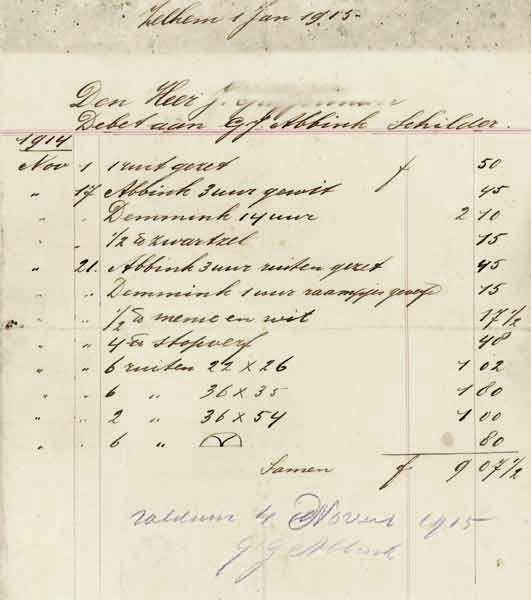 Zelhem 1 Jan 1915.
Den Heer J.
Debet aan G J Abbink Schilder.
1914
Nov 1 1 ruit gezet f 50
" 17 Abbink 3 uur gewit 45
" " Demmink 14 uur 2 10
" " 1/2 ℔ zwartzel 15
" 21. Abbink 3 uur ruiten gezet 45
" " Demmink 1 uur raampjes geverfd 15
" " 1/2 ℔ menie en wit 17 1/2
" " 4 ℔ stopverf 48
" " 6 ruiten 22 x 26 1 02
" " 6 " 36 x 35 1 80
" " 2 " 36 x 54 1 00
" " 6 " 80
Samen f 9 07 1/2
voldaan 4 Novem 1915
G J Abbink